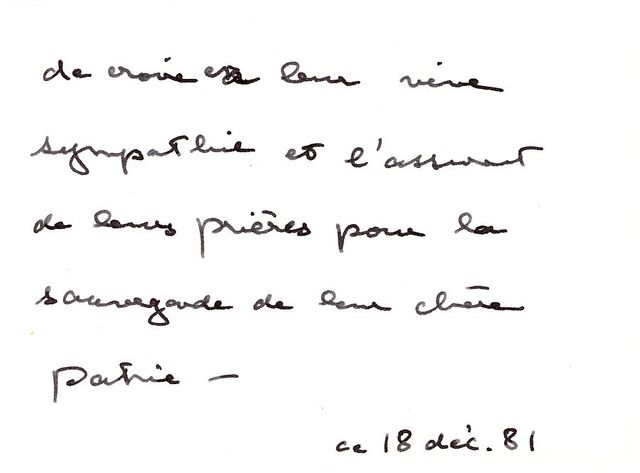 de croire à leur vive
sympathie et l'assurent
de leurs prières pour la
sauvegarde de leur chère
patrie —
ce 18 déc. 81